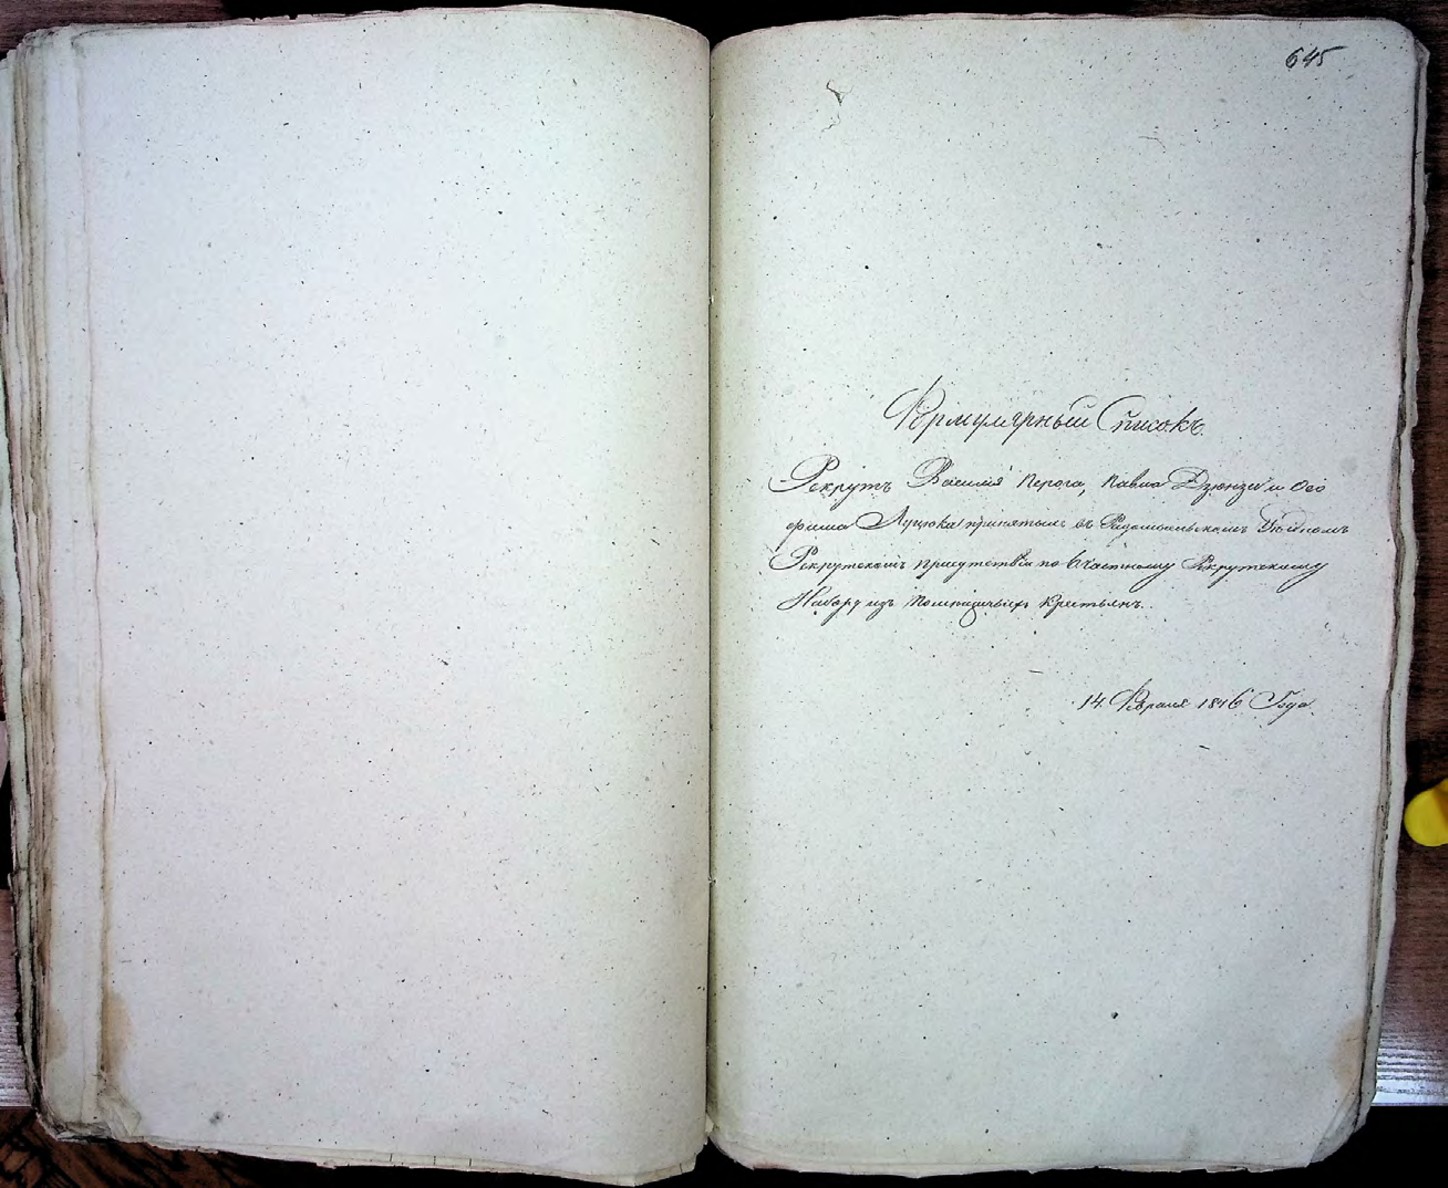 645
Формулярный Списокъ
Рекрутъ Василія Перога, Павла Дзюнзи и Ѳео
фила Луцюка принятымъ въ Радомысльскомъ Уѣздномъ
Рекрутскомъ присутствіи по 6 частному Рекрутскому
Набору изъ помѣщичьихъ Крестьянъ.
14. Февраля 1846 Года